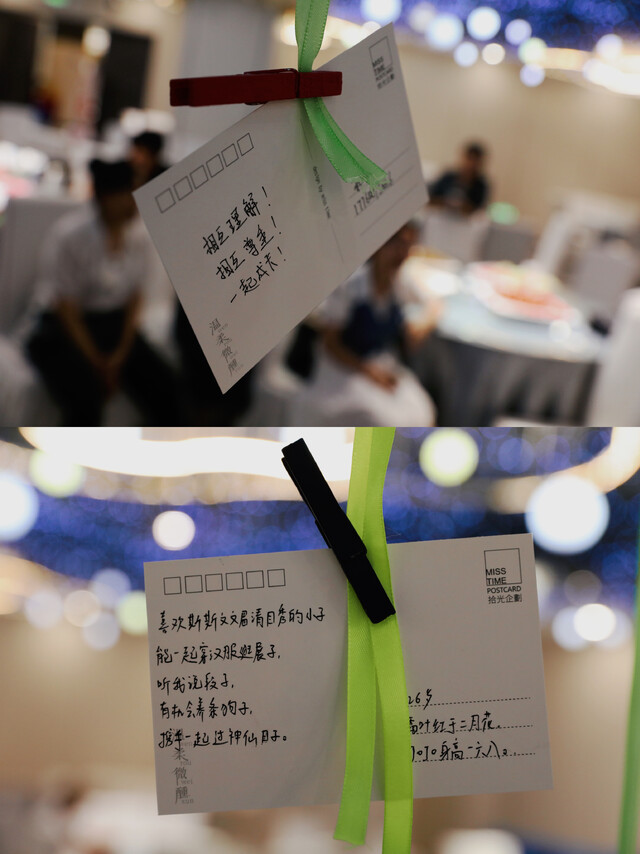 MISS
TIME
相互理解！
相互尊重！
一起成长！
温柔微醺
MISS
TIME
POSTCARD
拾光企劃
喜欢斯斯文文眉清目秀的小子
能一起穿汉服逛展子，
听我说段子，
有机会养条狗子，
携手一起过神仙日子。
柔微醺
26岁
霜叶红于二月花，
身高一六八。